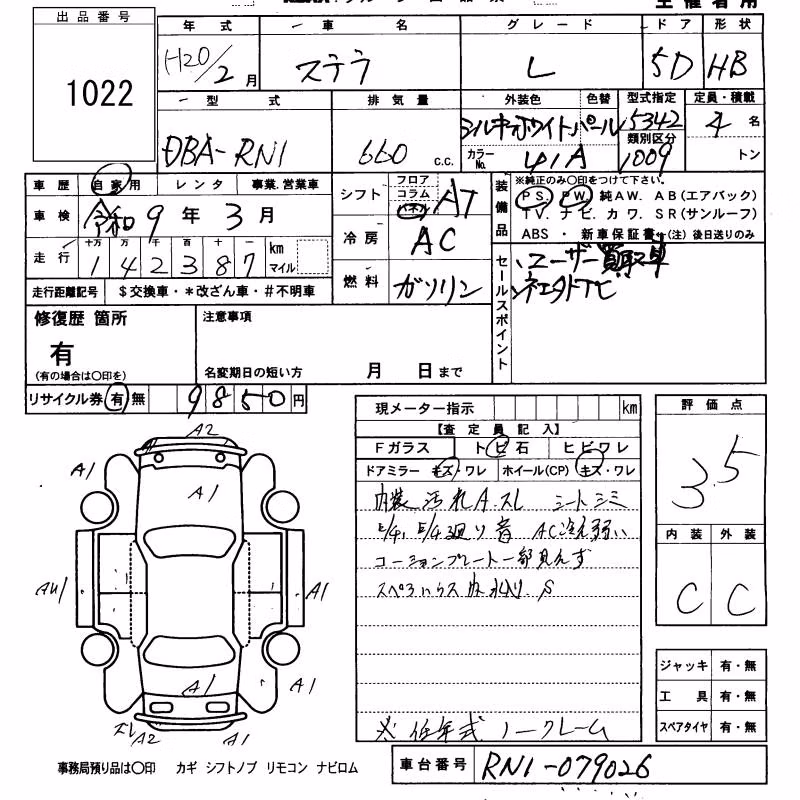 出品番号
1022
年式 車名 グレード ドア 形状
H20/2月 ステラ L 5D HB
型式 排気量 外装色 色替 型式指定 定員・積載
DBA-RN1 660 c.c. シルキーホワイトパール 15342 4名
カラーNo. 41A 類別区分 1009 トン
車歴 自家用 レンタ 事業.営業車
車検 令和9年3月
走行 十万 万 千 百 十 一 km マイル
142387
走行距離記号 $交換車・*改ざん車・#不明車
シフト フロア コラム パネル AT
冷房 AC
燃料 ガソリン
装備品
※純正のみ〇印をつけて下さい。
PS. PW. 純AW. AB(エアバック)
TV. ナビ. カワ. SR(サンルーフ)
ABS ・ 新車保証書←(注)後日送りのみ
セールスポイント
ユーザー買取車
修復歴 箇所
有
(有の場合は〇印を)
注意事項
名変期日の短い方 月 日まで
リサイクル券 有 無 9850円
現メーター指示 km
【査定員記入】
Fガラス トビ石 ヒビワレ
ドアミラー キズ・ワレ ホイール(CP) キズ・ワレ
内装 汚れ A スレ シートシミ
AC冷え弱い
コーションプレート一部見えず
※ 低年式 ノークレーム
評価点
3.5
内装 外装
C C
ジャッキ 有・無
工具 有・無
スペアタイヤ 有・無
A2
A1
A1
A1
A1
A1
A1
ズレ
A2
A1
事務局預り品は〇印 カギ シフトノブ リモコン ナビロム
車台番号 RN1-079026